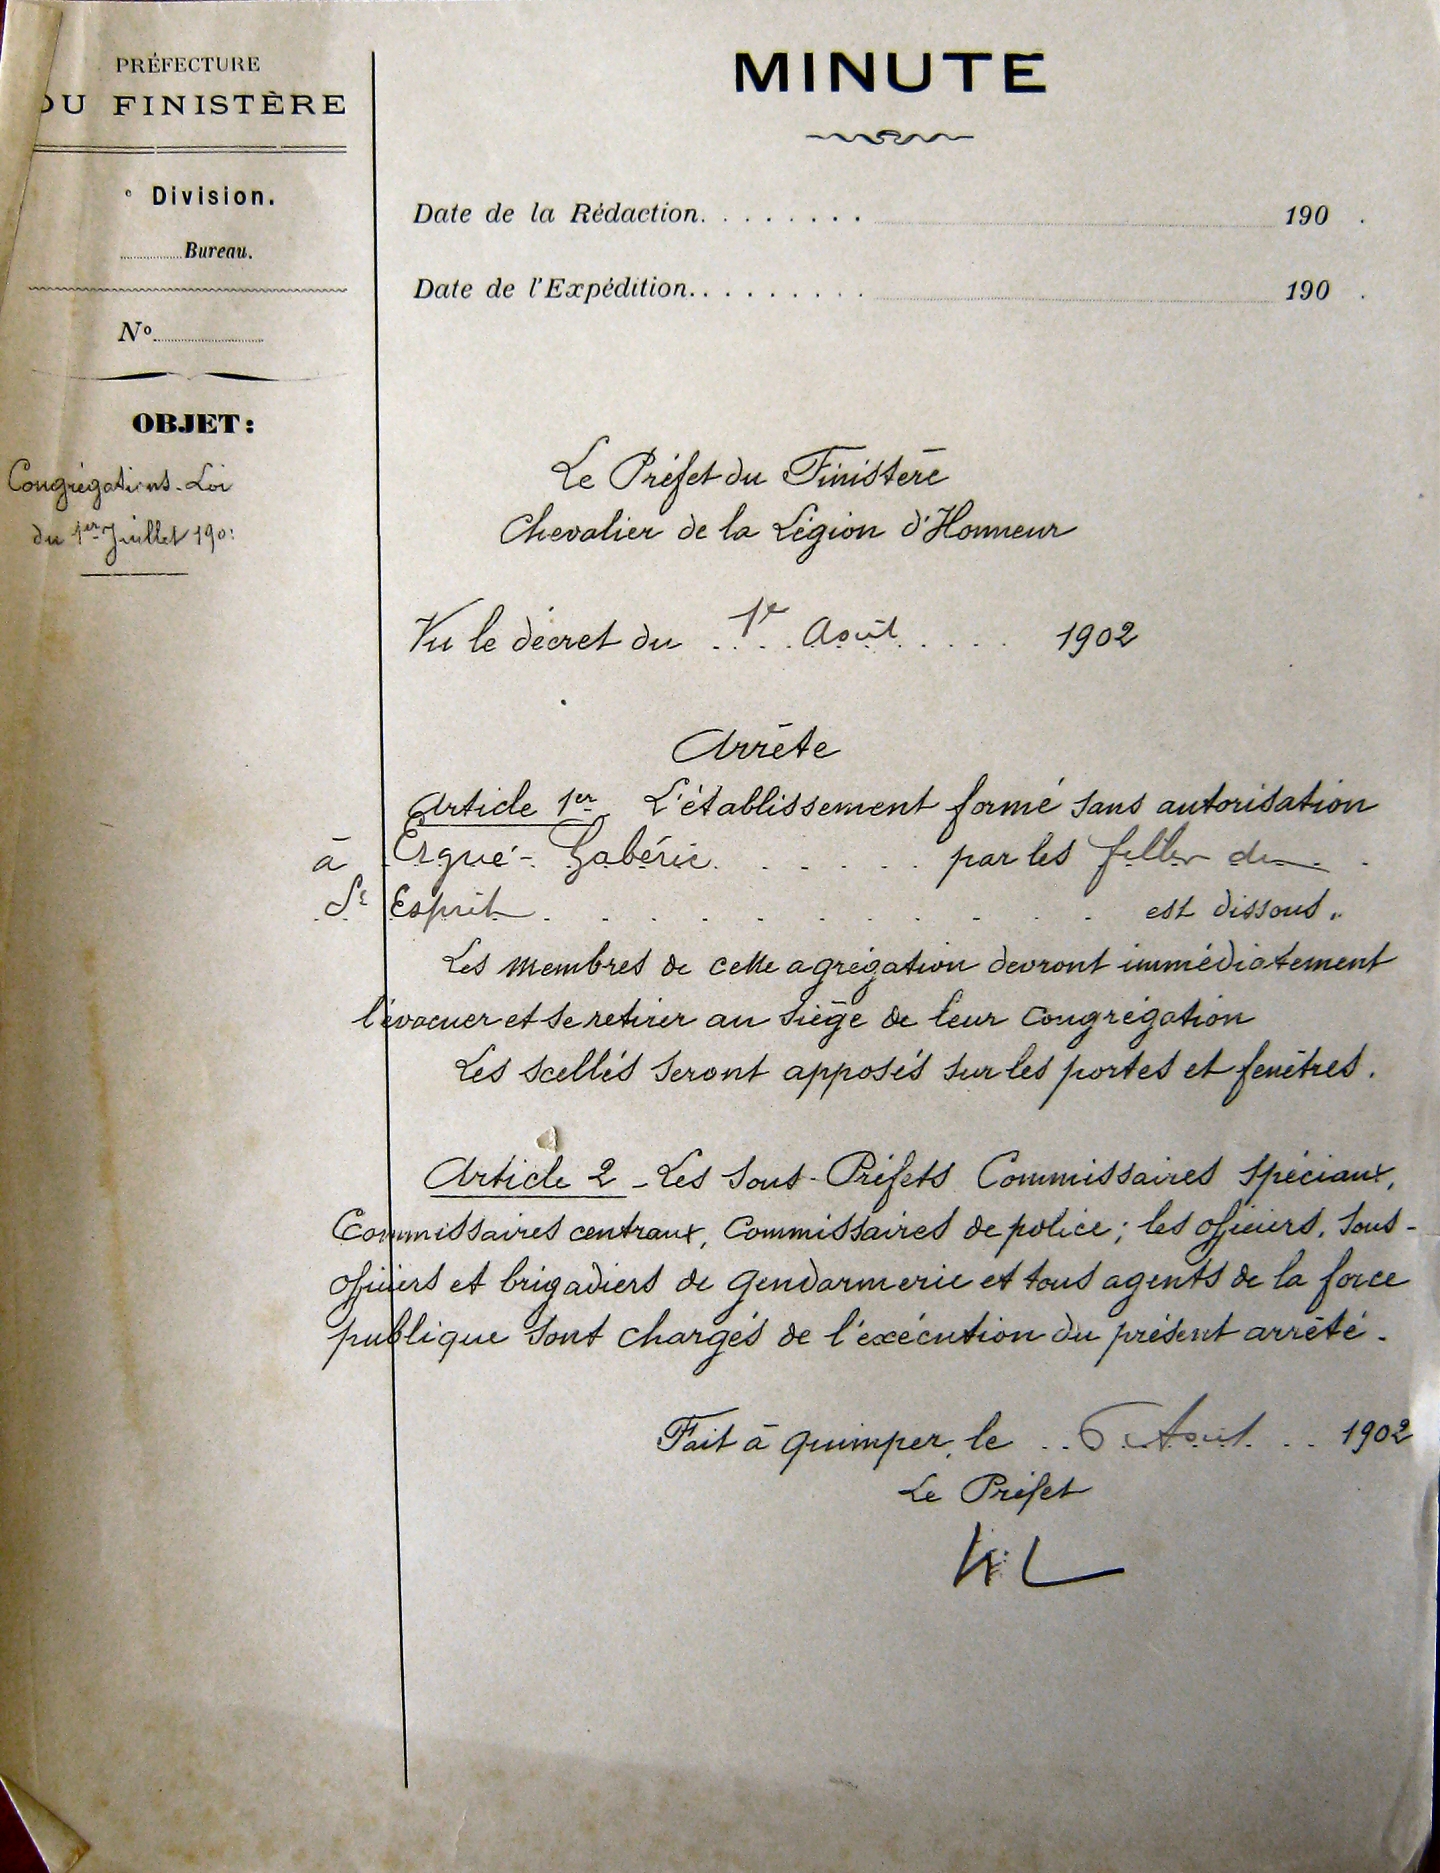 PRÉFECTURE
DU FINISTÈRE
e Division.
Bureau.
No
OBJET:
Congrégations-Loi
du 1er Juillet 190
MINUTE
Date de la Rédaction. . . . . . . . 190 .
Date de l'Expédition. . . . . . . . . 190 .
Le Préfet du Finistère
Chevalier de la Légion d'Honneur
Vu le décret du . 1er . . Août . . . . . 1902
Arrête
Article 1er L'établissement formé sans autorisation
à Ergué-Gabéric . . . . . . par les filles du
St Esprit . . . . . . . . . . . est dissous.
Les membres de cette agrégation devront immédiatement
l'évacuer et se retirer au siège de leur congrégation
Les scellés seront apposés sur les portes et fenêtres.
Article 2 - Les Sous-Préfets Commissaires spéciaux,
Commissaires centraux, Commissaires de police; les officiers, sous-
officiers et brigadiers de gendarmerie et tous agents de la force
publique sont chargés de l'exécution du présent arrêté.
Fait à Quimper, le . . 6 Août . . 1902
Le Préfet